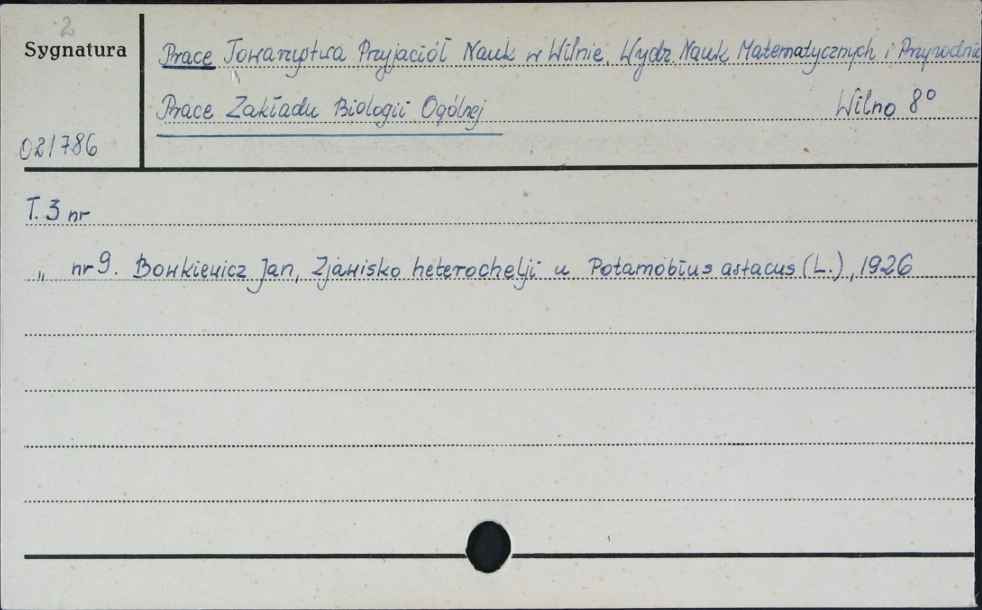 2
Sygnatura
Prace Towarzystwa Przyjaciół Nauk w Wilnie. Wydz. Nauk Matematycznych i Przyrodnic
Prace Zakładu Biologii Ogólnej Wilno 8°
021786
T. 3 nr
„ nr 9. Bowkiewicz Jan, Zjawisko heterochelji u Potamobius astacus (L.), 1926